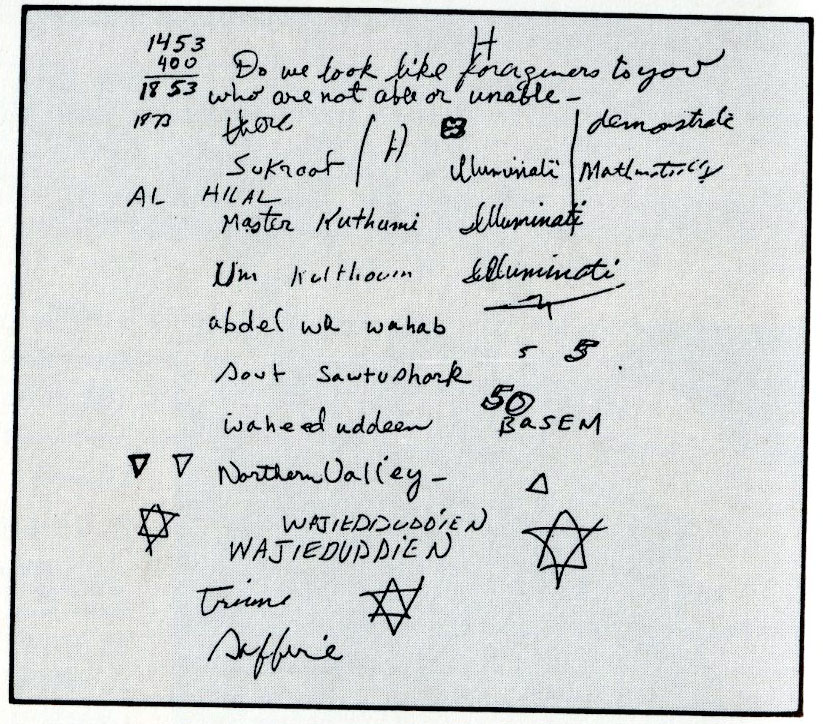 1453 H
400
1853 Do we look like forageners to you
who are not able or unable -
1873 there (H) demonstrate
Sukroot Illuminati
AL HILAL
Master Kuthumi Illuminati
Um Kulthoum Illuminati
abdel wa wahab
5 5
Sout Sawtushark
50
waheeduddeen BASEM
Northern Valley -
WAJIEDDUDDIEN
WAJIEDUDDIEN